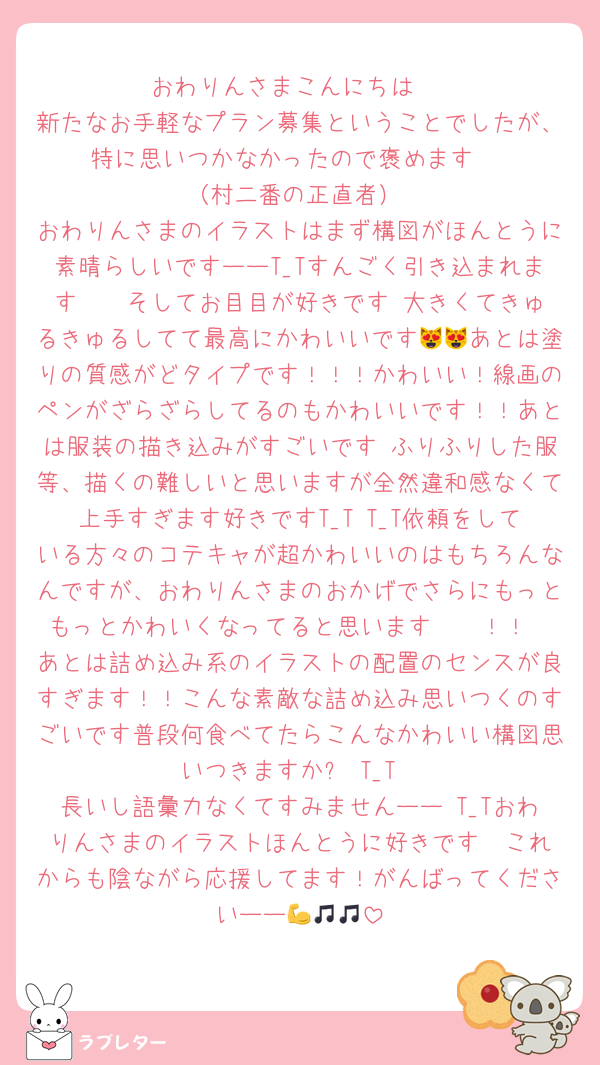 おわりんさまこんにちは
新たなお手軽なプラン募集ということでしたが、
特に思いつかなかったので褒めます
(村二番の正直者)
おわりんさまのイラストはまず構図がほんとうに
素晴らしいですーーT_Tすんごく引き込まれま
す　　そしてお目目が好きです 大きくてきゅ
るきゅるしてて最高にかわいいです😻😻あとは塗
りの質感がどタイプです！！！かわいい！線画の
ペンがざらざらしてるのもかわいいです！！あと
は服装の描き込みがすごいです ふりふりした服
等、描くの難しいと思いますが全然違和感なくて
上手すぎます好きですT_T T_T依頼をして
いる方々のコテキャが超かわいいのはもちろんな
んですが、おわりんさまのおかげでさらにもっと
もっとかわいくなってると思います　　！！
あとは詰め込み系のイラストの配置のセンスが良
すぎます！！こんな素敵な詰め込み思いつくのす
ごいです普段何食べてたらこんなかわいい構図思
いつきますか?　T_T
長いし語彙力なくてすみませんーー T_Tおわ
りんさまのイラストほんとうに好きです　これ
からも陰ながら応援してます！がんばってくださ
いーー💪🎵🎵♡
ラブレター